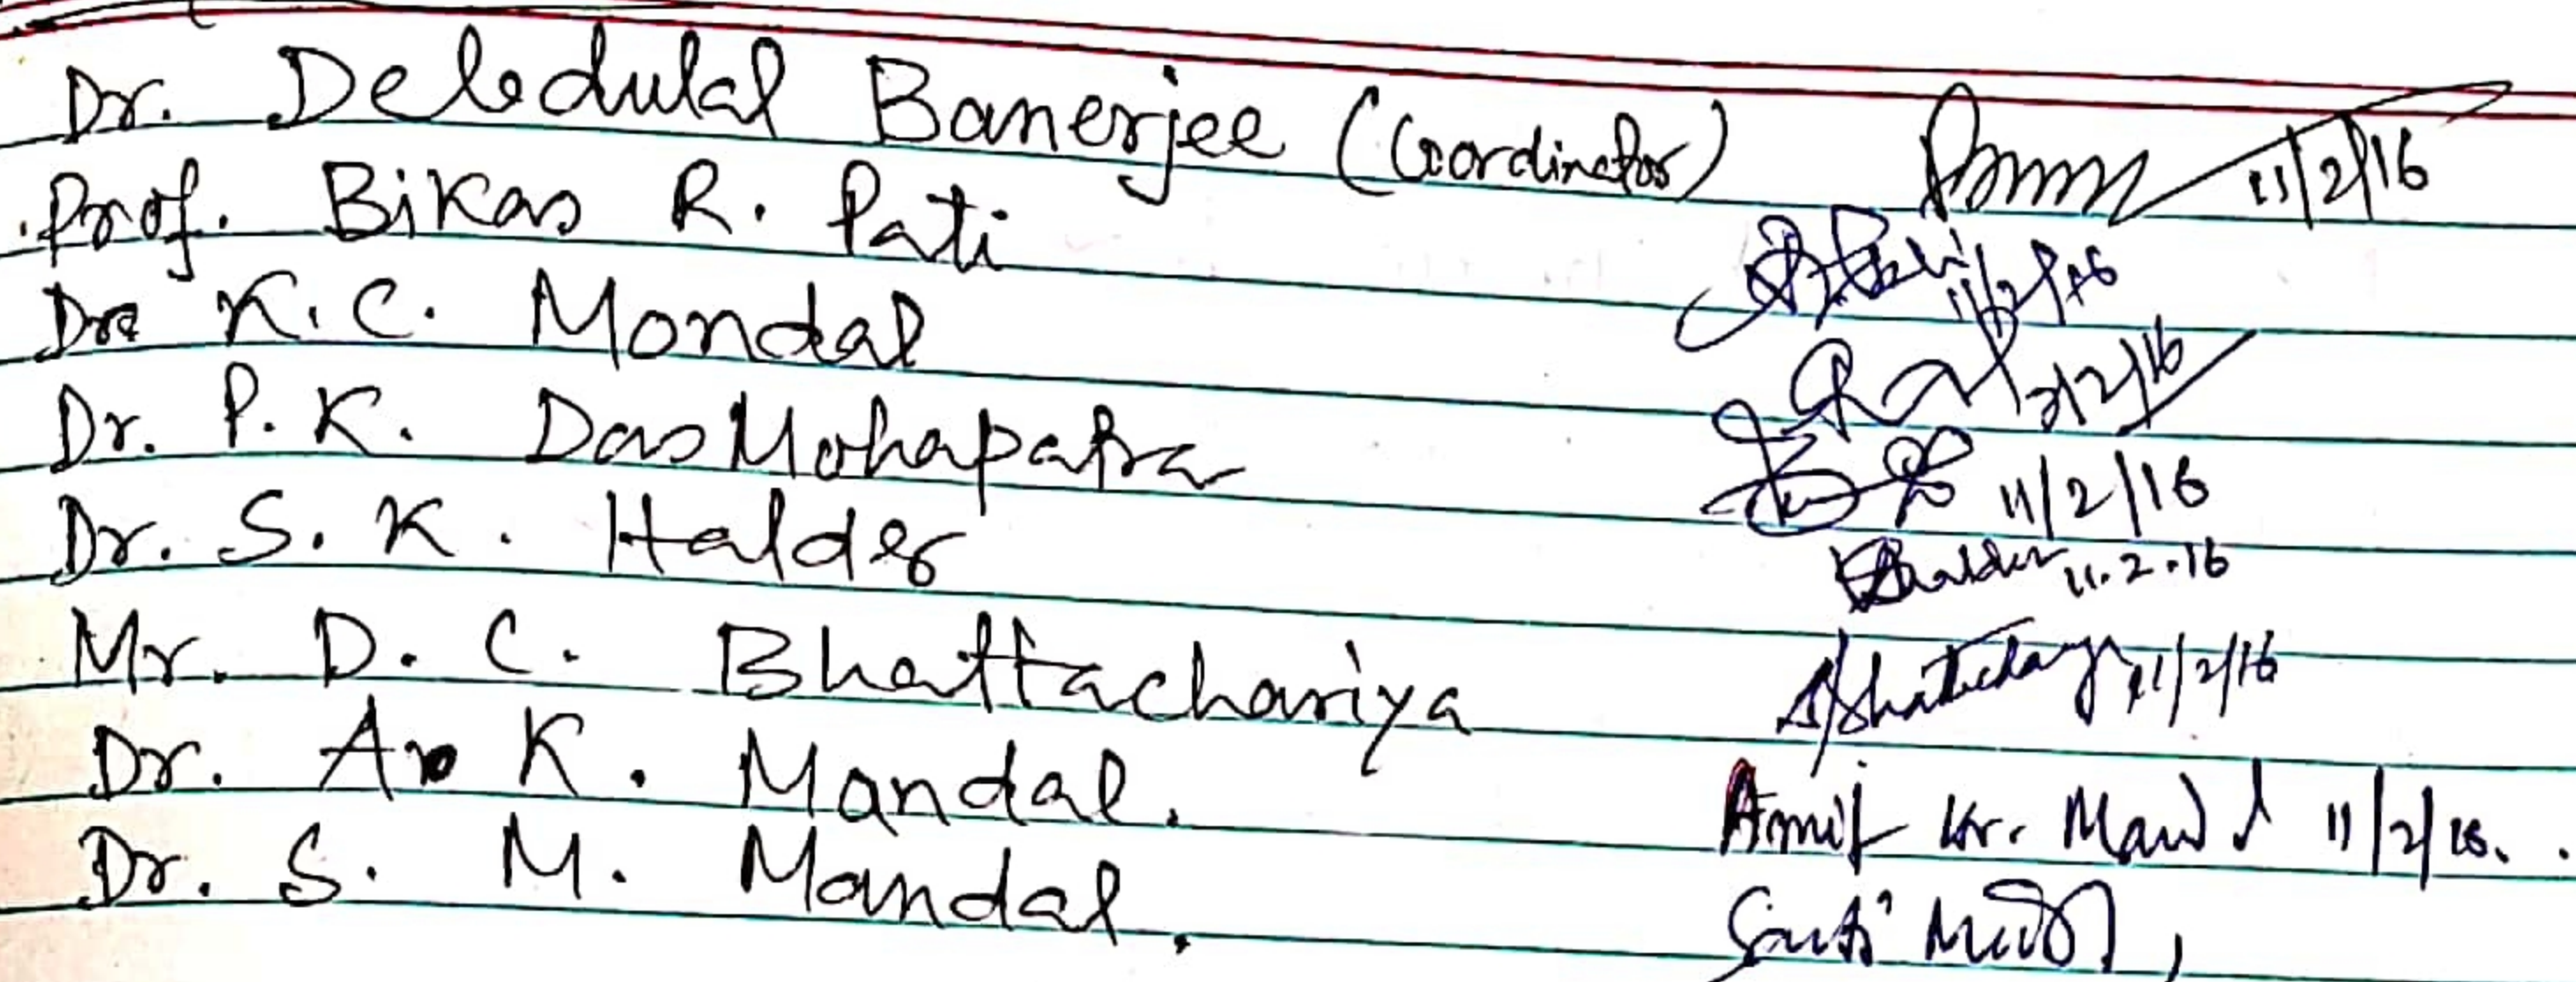 Dr. Debdulal Banerjee (Coordinator) 11/2/16
Prof. Bikas R. Pati 11/2/16
Dr. K. C. Mondal 11/2/16
Dr. P. K. DasMohapatra 11/2/16
Dr. S. K. Halder Shalder 11.2.16
Mr. D. C. Bhattachariya 11/2/16
Dr. A. K. Mandal. Amit Kr. Mandal 11/2/16.
Dr. S. M. Mandal.